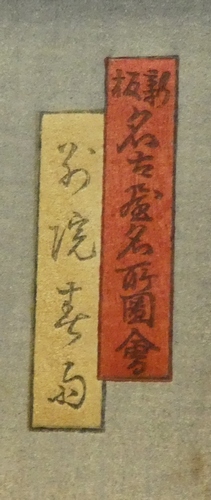 新板
名古屋名所圖會
別院春雨